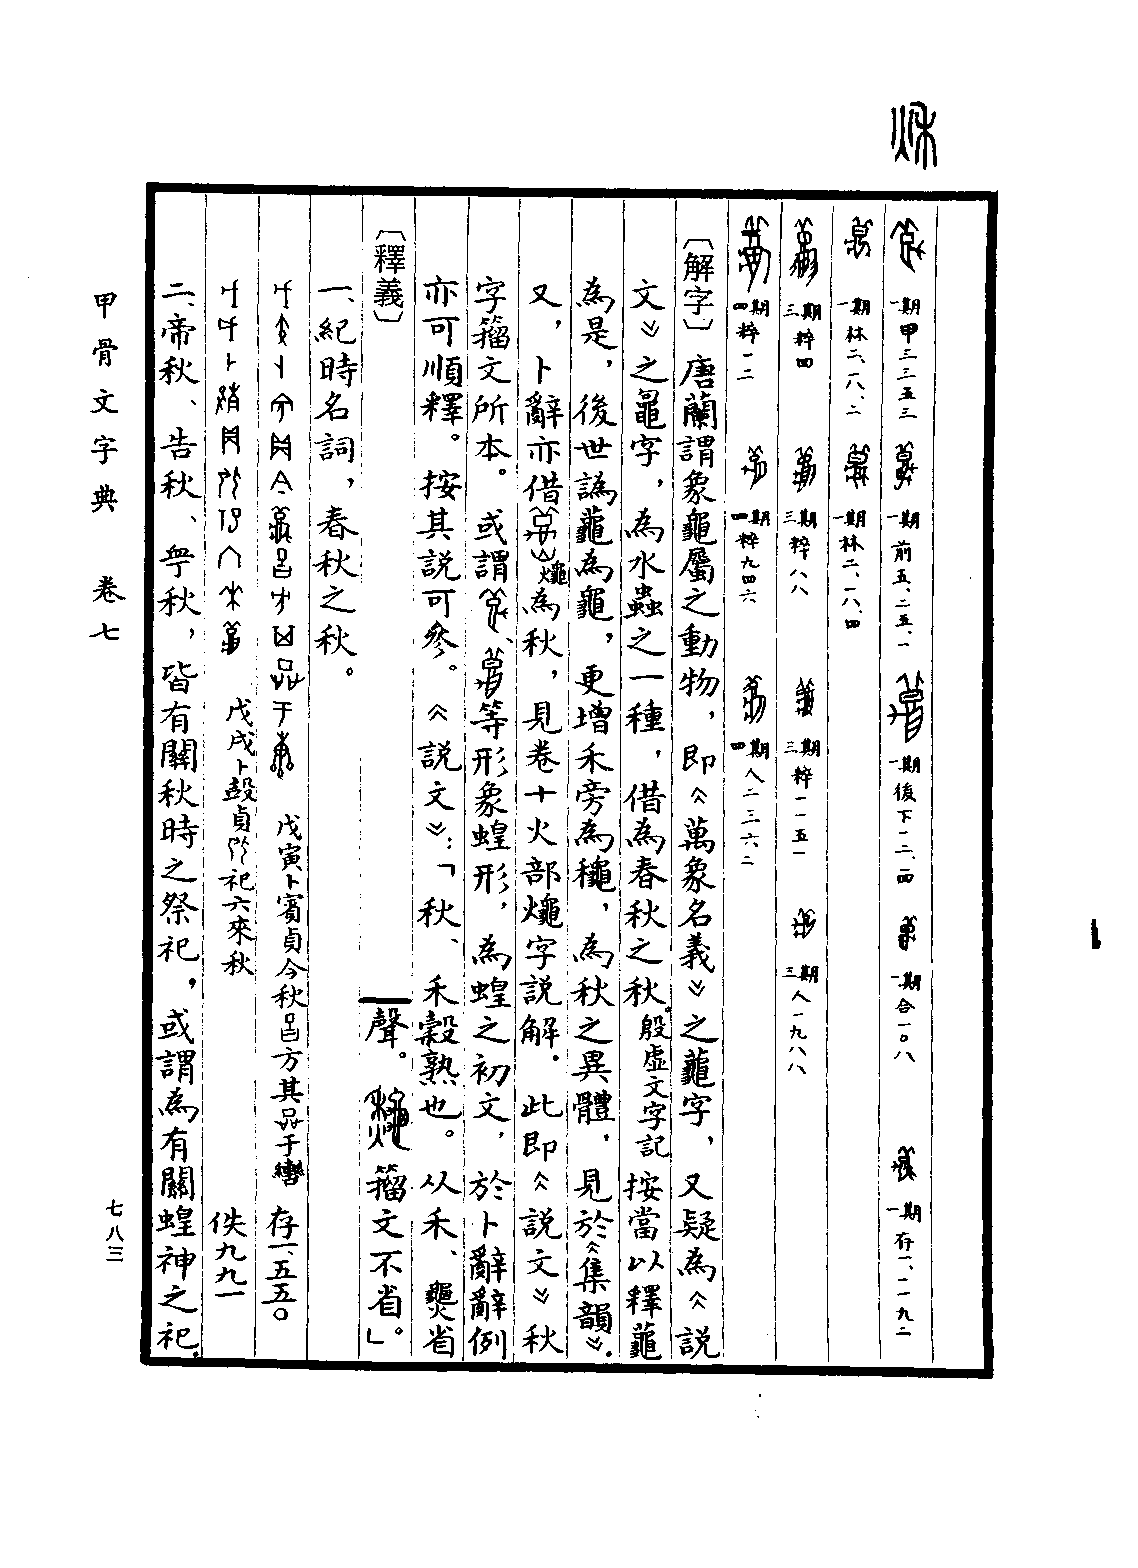 秋
一期甲三三五三 一期前五、二五、一 一期後下一二、一四 一期合一〇八 一期存一、一一九二
一期林二、一八、二 一期林二、一八、四
三期粹四 三期粹八八 三期粹一一五一 三期人一九八八
四期粹一二 四期粹九四六 四期人二三六二
〔解字〕唐蘭謂象龜屬之動物，即《萬象名義》之龝字，又疑為《說
文》之鼂字，為水蟲之一種，借為春秋之秋。殷虛文字記 按當以釋
為是，後世譌 為龜，更增禾旁為龝，為秋之異體，見於《集韻》。
又，卜辭亦借 為秋，見卷十火部 字說解。此即《說文》秋
字籀文所本。或謂 、 等形象蝗形，為蝗之初文，於卜辭辭例
亦可順釋。按其說可參。《說文》：「秋、禾穀熟也。从禾、 省
聲。 籀文不省」。
〔釋義〕
一、紀時名詞，春秋之秋。
戊寅卜賓貞今秋 方其 于 存一、五五〇
戊戌卜㱿貞 祀六來秋 佚九九一
二、帝秋、告秋、寧秋，皆有關秋時之祭祀，或謂為有關蝗神之祀。
甲骨文字典 卷七
七八三